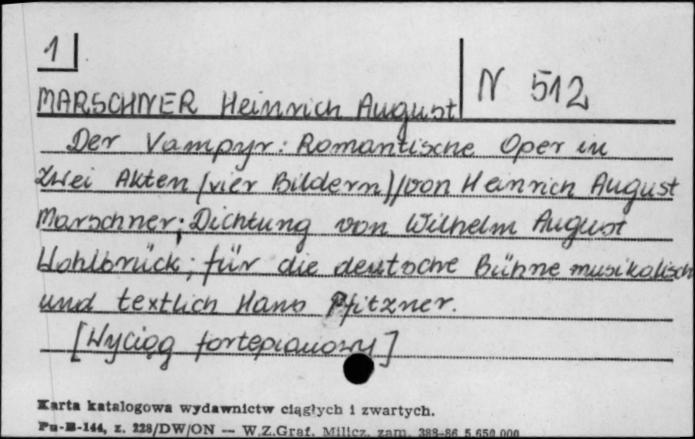 1
N 512
MARSCHNER Heinrich August
Der Vampyr: Romantische Oper in
zwei Akten (vier Bildern)/von Heinrich August
Marschner; Dichtung von Wilhelm August
Wohlbrück; für die deutsche Bühne musikalisch
und textlich Hans Pfitzner.
[Wyciąg fortepianowy]
Karta katalogowa wydawnictw ciągłych i zwartych.
Pu-B-144, z. 228/DW/ON — W.Z.Graf. Milicz, zam. 388-86 5.650.000